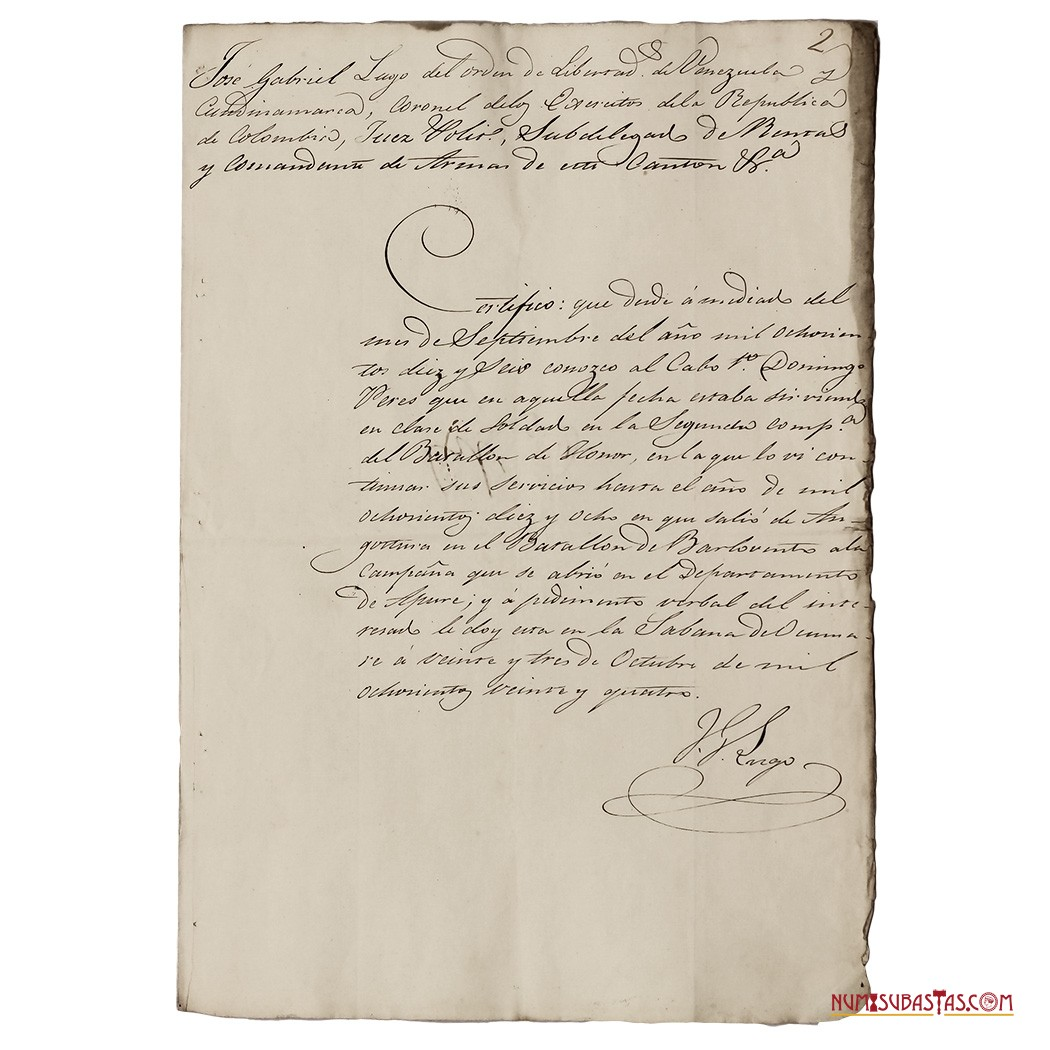 2
José Gabriel Lugo del orden de Libertad.s de Venezuela y
Cundinamarca, Coronel delos Exercitos dela Republica
de Colombia, Juez Polit.o, Subdelegado de Rentas
y Comandante de Armas de este Canton &.a
Certifico: que desde á mediado del
mes de Septiembre del año mil ochocien-
tos diez y seis conozco al Cabo 1.o Domingo
Peres que en aquella fecha estaba sirviendo
en clase de Soldado en la Segunda comp.a
del Batallon de Honor, en la que lo vi con-
tinuar sus servicios hasta el año de mil
ochocientos diez y ocho en que salió de An-
gostura en el Batallon de Barlovento ala
Campaña que se abrió en el Departamento
de Apure; y á pedimento verbal del inte-
resado le doy esta en la Sabana de Ocuma-
re á veinte y tres de Octubre de mil
ochocientos veinte y quatro.
J. G. Lugo
NUMISUBASTAS.COM